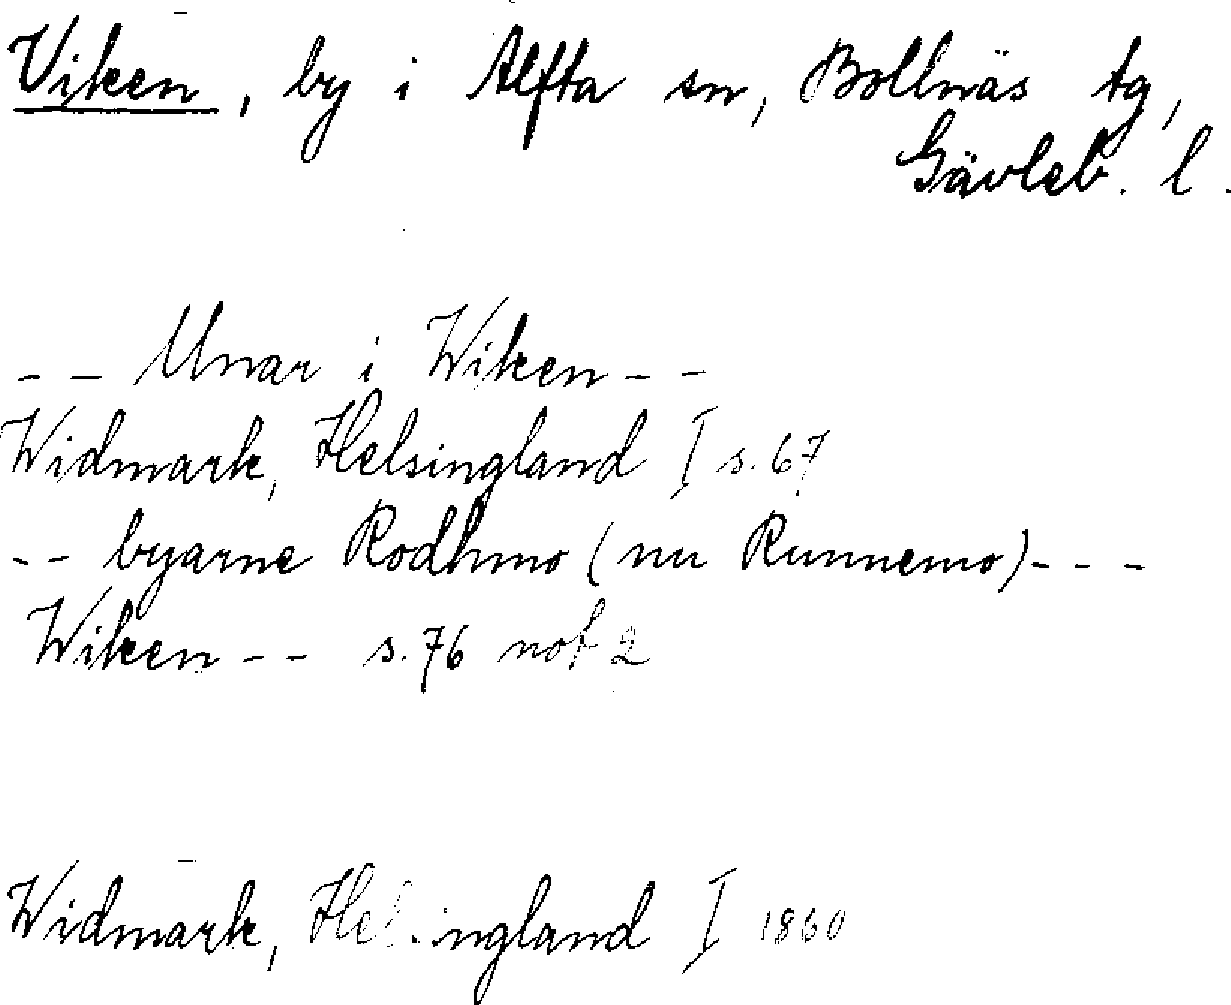 Viken, by i Alfta sn, Bollnäs tg,
Gävleb. l.
-- Unar i Wiken--
Widmark, Helsingland I s. 67
-- byarne Rodhmo (nu Runnemo)---
Wiken-- s. 76 not 2
Widmark, Helsingland I 1860